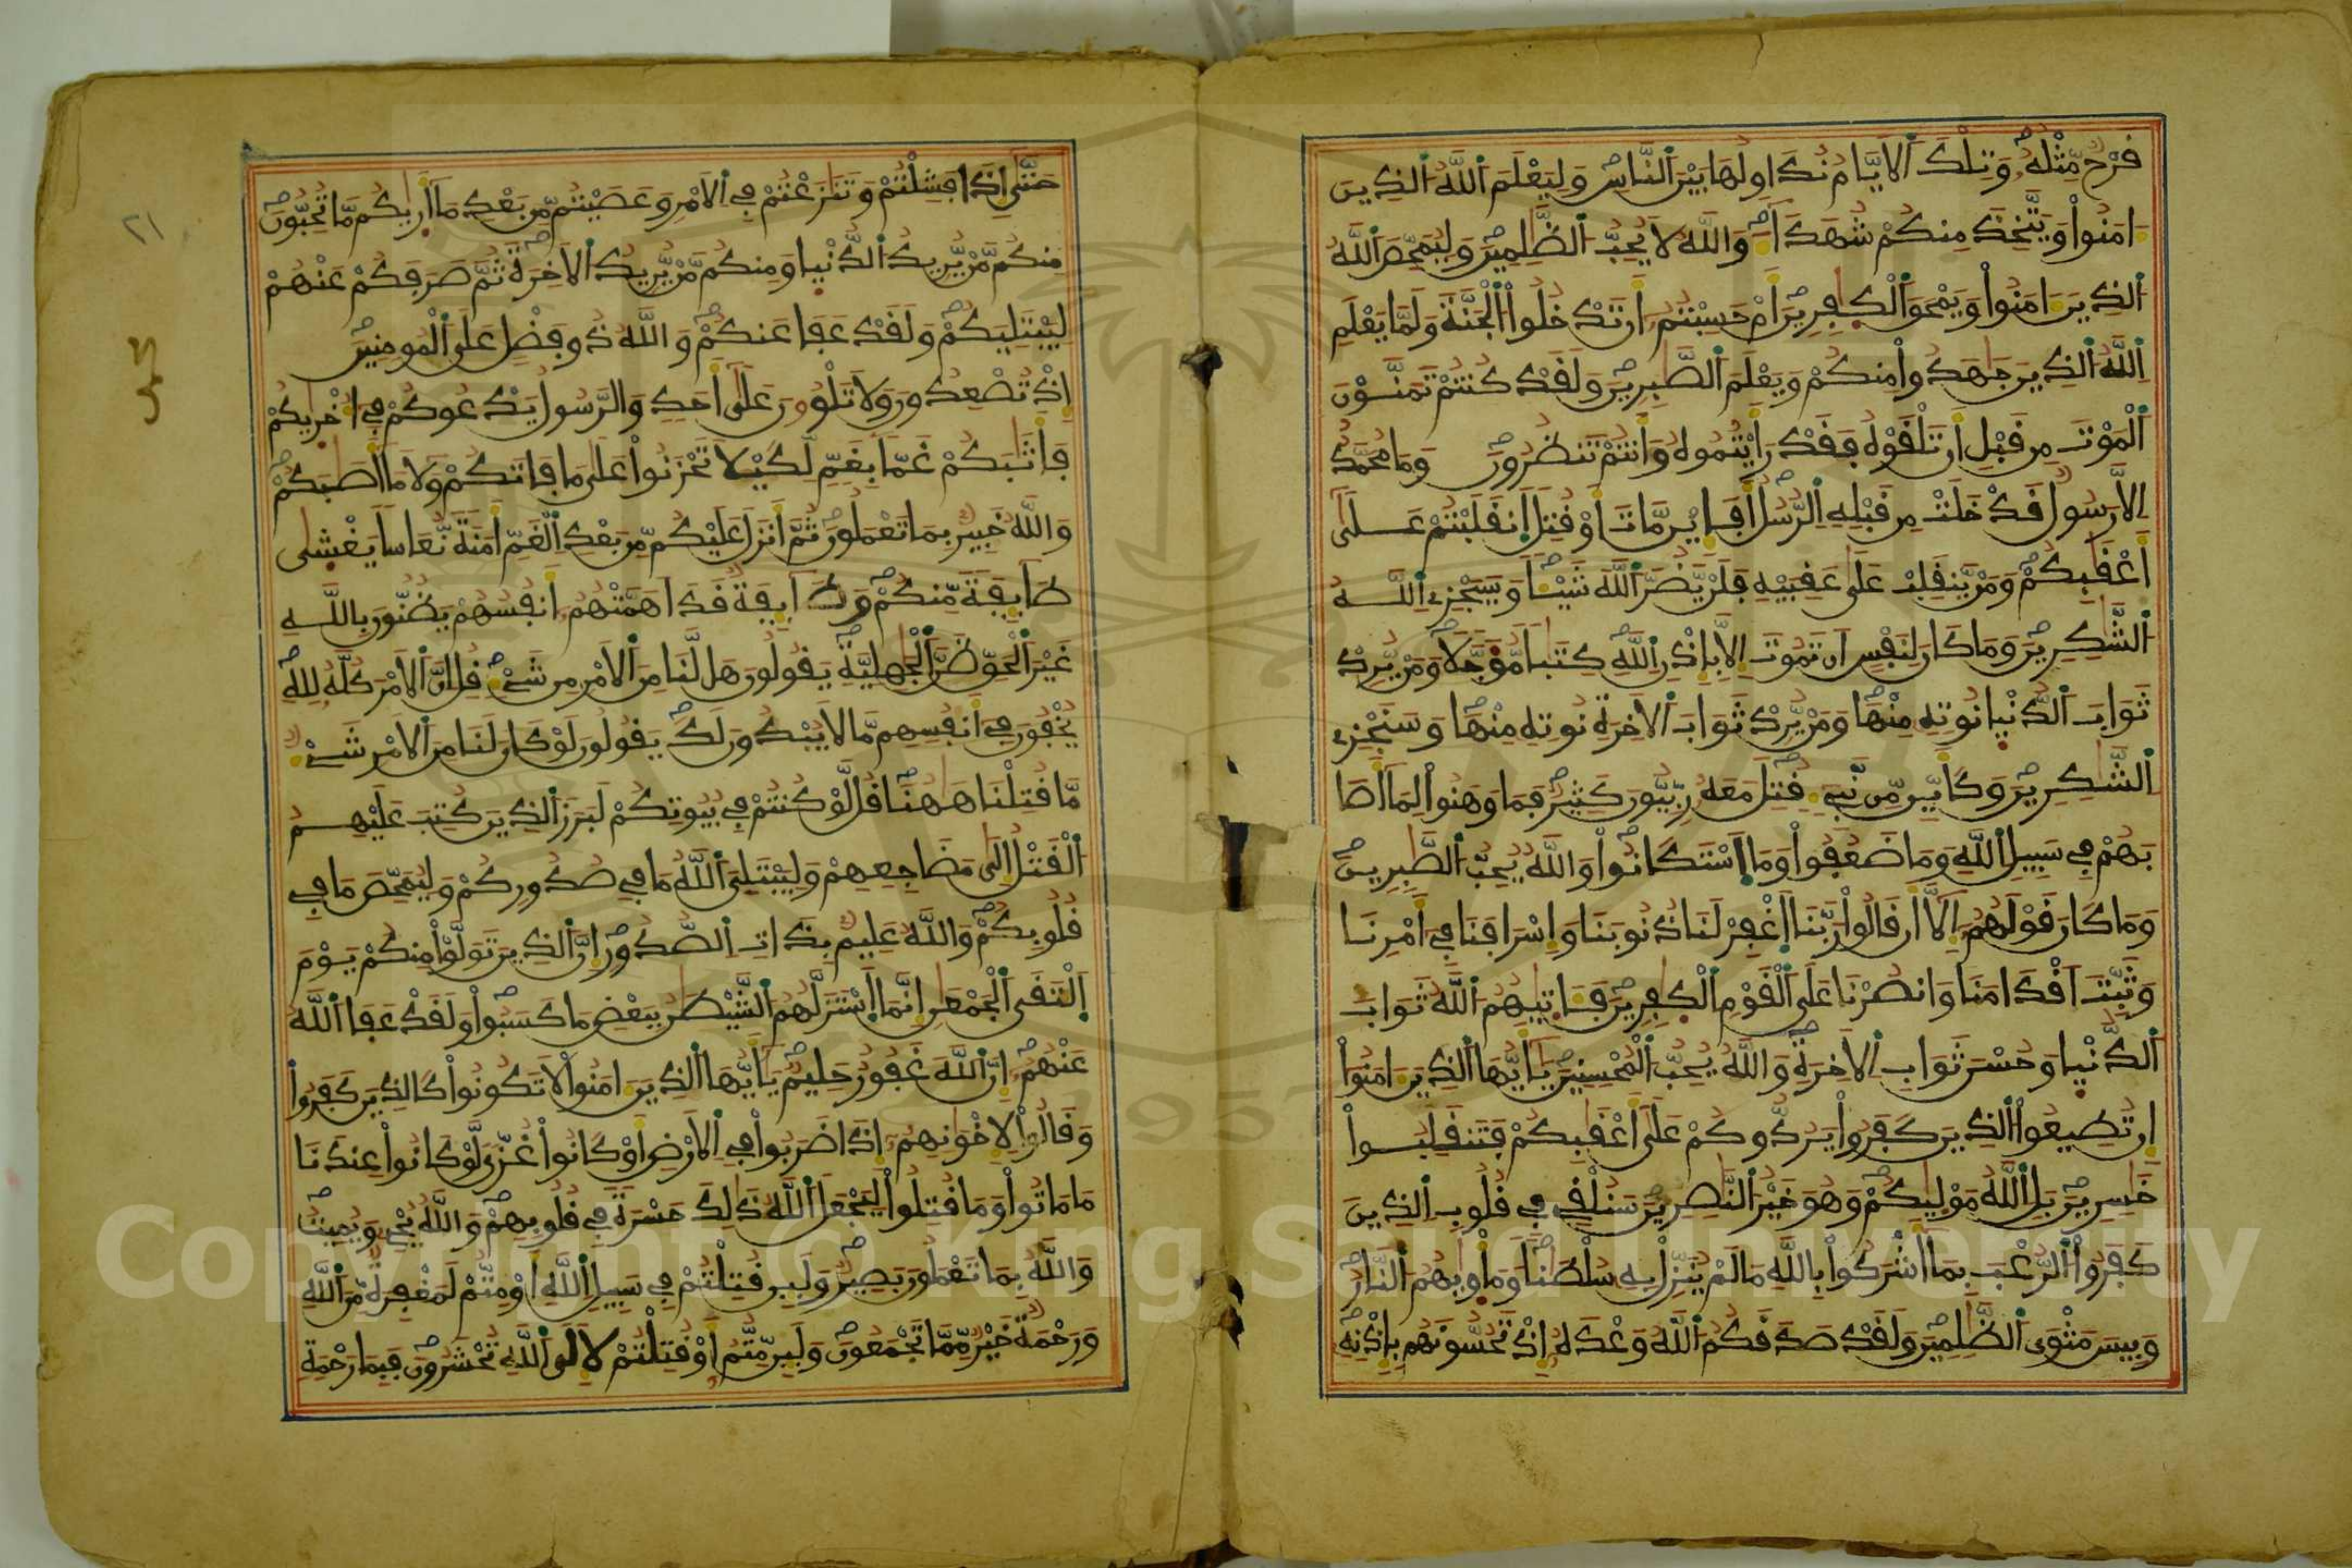 قرح مثله وتلك الايام نداولها بين الناس وليعلم الله الذين
امنوا ويتخذ منكم شهدا والله لا يحب الظلمين وليمحص الله
الذين امنوا ويمحق الكفرين ام حسبتم ان تدخلوا الجنة ولما يعلم
الله الذين جهدوا منكم ويعلم الصبرين ولقد كنتم تمنون
الموت من قبل ان تلقوه فقد رايتموه وانتم تنظرون وما محمد
الا رسول قد خلت من قبله الرسل أفإين مات او قتل انقلبتم على
أعقبكم ومن ينقلب على عقبيه فلن يضر الله شيا وسيجزي الله
الشكرين وما كان لنفس ان تموت الا بإذن الله كتبا موجلا ومن يرد
ثواب الدنيا نوته منها ومن يرد ثواب الاخرة نوته منها وسنجزي
الشكرين وكأين من نبي قتل معه ربيون كثير فما وهنوا لما أصا
بهم في سبيل الله وما ضعفوا وما استكانوا والله يحب الصبرين
وما كان قولهم إلا أن قالوا ربنا اغفر لنا ذنوبنا وإسرافنا في أمرنا
وثبت أقدامنا وانصرنا على القوم الكفرين فاتيهم الله ثواب
الدنيا وحسن ثواب الاخرة والله يحب المحسنين يأيها الذين امنوا
ان تطيعوا الذين كفروا يردوكم على أعقبكم فتنقلبوا
خسرين بل الله موليكم وهو خير النصرين سنلقي في قلوب الذين
كفروا الرعب بما أشركوا بالله ما لم ينزل به سلطنا وماويهم النار
وبيس مثوى الظلمين ولقد صدقكم الله وعده إذ تحسونهم بإذنه
حتى إذا فشلتم وتنزعتم في الامر وعصيتم من بعد ما أريكم ما تحبون
منكم من يريد الدنيا ومنكم من يريد الاخرة ثم صرفكم عنهم
ليبتليكم ولقد عفا عنكم والله ذو فضل على المومنين
إذ تصعدون ولا تلوون على أحد والرسول يدعوكم في أخريكم
فأثبكم غما بغم لكيلا تحزنوا على ما فاتكم ولا ما أصبكم
والله خبير بما تعملون ثم أنزل عليكم من بعد الغم أمنة نعاسا يغشى
طايفة منكم وطايفة قد أهمتهم أنفسهم يظنون بالله
غير الحق ظن الجهلية يقولون هل لنا من الامر من شيء قل ان الامر كله لله
يخفون في أنفسهم ما لا يبدون لك يقولون لو كان لنا من الامر شيء
ما قتلنا ههنا قل لو كنتم في بيوتكم لبرز الذين كتب عليهم
القتل إلى مضاجعهم وليبتلي الله ما في صدوركم وليمحص ما في
قلوبكم والله عليم بذات الصدور إن الذين تولوا منكم يوم
التقى الجمعن إنما استزلهم الشيطن ببعض ما كسبوا ولقد عفا الله
عنهم إن الله غفور حليم يأيها الذين امنوا لا تكونوا كالذين كفروا
وقالوا لإخونهم إذا ضربوا في الارض أو كانوا غزى لو كانوا عندنا
ما ماتوا وما قتلوا ليجعل الله ذلك حسرة في قلوبهم والله يحي ويميت
والله بما تعملون بصير ولين قتلتم في سبيل الله أو متم لمغفرة من الله
ورحمة خير مما تجمعون ولين متم أو قتلتم لإلى الله تحشرون فبما رحمة
٢١